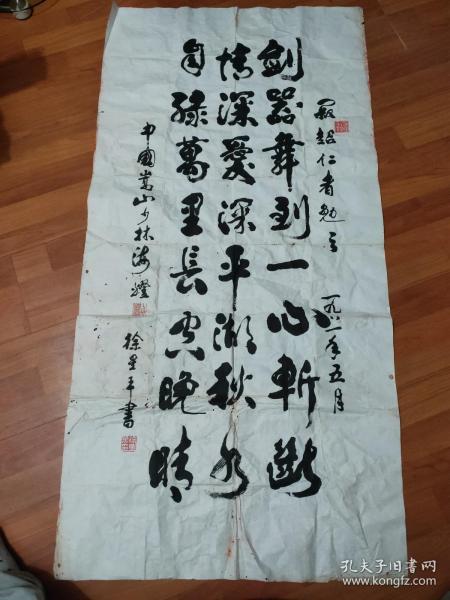 超仁者勉之 一九八一年五月
劍器舞到一心斬斷
情深愛深平湖秋水
自綠萬里長空晚晴
中國嵩山少林海燈
徐星平書
孔夫子旧书网
www.kongfz.com